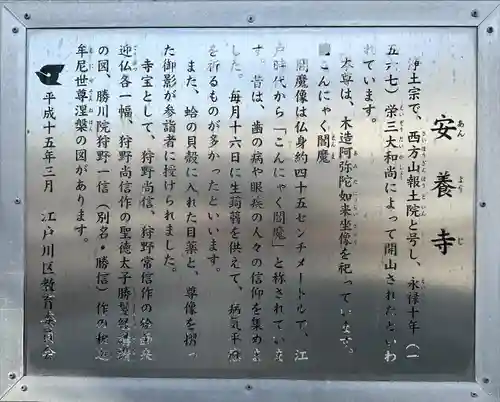 安養寺
あん よう じ
浄土宗で、西方山報土院と号し、永禄十年（一
五六七）栄三大和尚によって開山されたといわ
れています。
本尊は、木造阿弥陀如来坐像を祀っています。
■こんにゃく閻魔
閻魔像は仏身約四十五センチメートルで、江
戸時代から「こんにゃく閻魔」と称されていま
す。昔は、歯の病や眼疾の人々の信仰を集めま
した。毎月十六日に生蒟蒻を供えて、病気平癒
を祈るものが多かったといいます。
また、蛤の貝殻に入れた目薬と、尊像を摺っ
た御影が参詣者に授けられました。
寺宝として、狩野尚信、狩野常信作の
迎仏各一幅、狩野尚信作の聖徳太子勝鬘経講讃
の図、勝川院狩野一信（別名・勝信）作の釈迦
牟尼世尊涅槃の図があります。
平成十五年三月 江戸川区教育委員会